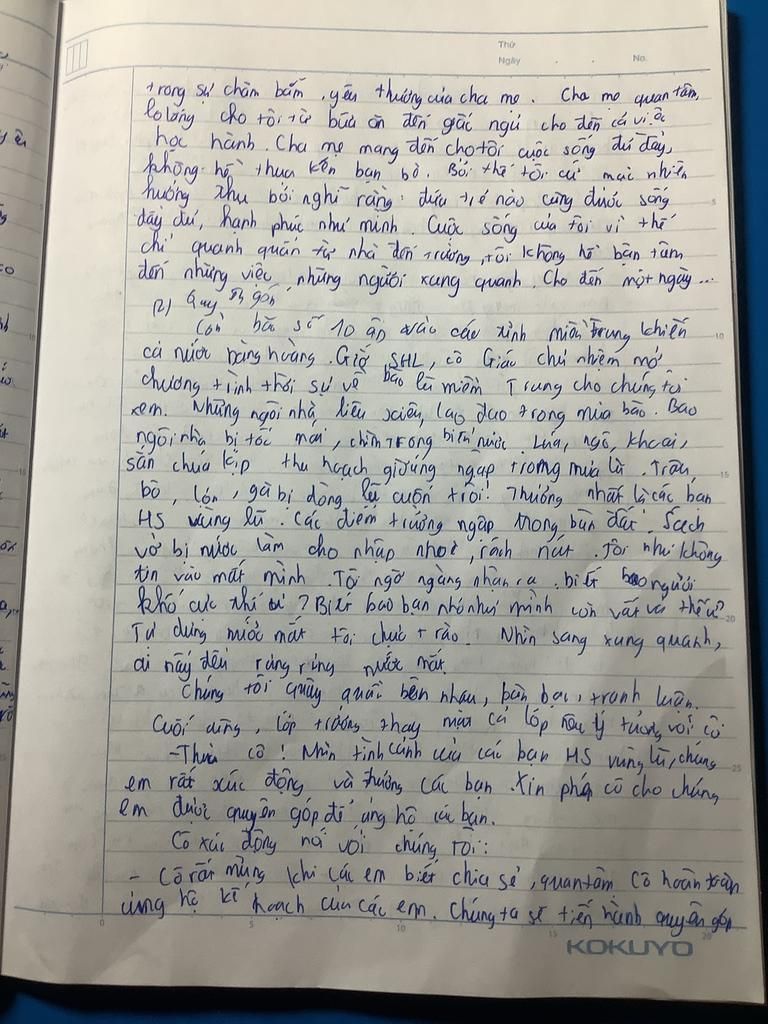 Thứ
Ngày . . No.
trong sự chăm bẵm, yêu thương của cha mẹ. Cha mẹ quan tâm,
lo lắng cho tôi từ bữa ăn đến giấc ngủ cho đến cả việc
học hành. Cha mẹ mang đến cho tôi cuộc sống đủ đầy,
không hề thua kén bạn bè. Bởi thế tôi cứ mặc nhiên
hưởng thụ bởi nghĩ rằng: đứa trẻ nào cũng được sống
đầy đủ, hạnh phúc như mình. Cuộc sống của tôi vì thế
chỉ quanh quẩn từ nhà đến trường, tôi không hề bận tâm
đến những việc, những người xung quanh. Cho đến một ngày...
(2) Quy góp
Cơn bão số 10 ập vào các tỉnh miền Trung khiến
cả nước bàng hoàng. Giờ SHL, cô Giáo chủ nhiệm mở
chương trình thời sự về bão lũ miền Trung cho chúng tôi
xem. Những ngôi nhà liêu xiêu, lao đao trong mưa bão. Bao
ngôi nhà bị tốc mái, chìm trong biển nước. Lúa, ngô, khoai,
sắn chưa kịp thu hoạch giờ úng ngập trong mưa lũ. Trâu,
bò, lợn, gà bị dòng lũ cuốn trôi! Thương nhất là các bạn
HS vùng lũ. Các điểm trường ngập trong bùn đất. Sách
vở bị nước làm cho nhập nhoè, rách nát. Tôi như không
tin vào mắt mình. Tôi ngỡ ngàng nhận ra biết bao người
khổ cực thế ư? Biết bao bạn nhỏ như mình còn vất vả thế ư?
Tự dưng nước mắt tôi chực trào. Nhìn sang xung quanh,
ai nấy đều rưng rưng nước mắt.
Chúng tôi quây quần bên nhau, bàn bạc, tranh luận.
Cuối cùng, lớp trưởng thay mặt cả lớp nêu lý tưởng với cô
- Thưa cô! Nhìn tình cảnh của các bạn HS vùng lũ, chúng
em rất xúc động và thương các bạn. Xin phép cô cho chúng
em được quyên góp để ủng hộ các bạn.
Cô xúc động nói với chúng tôi:
- Cô rất mừng khi các em biết chia sẻ, quan tâm. Cô hoàn toàn
ủng hộ kế hoạch của các em. Chúng ta sẽ tiến hành quyên góp
0 5 10 15 20
KOKUYO